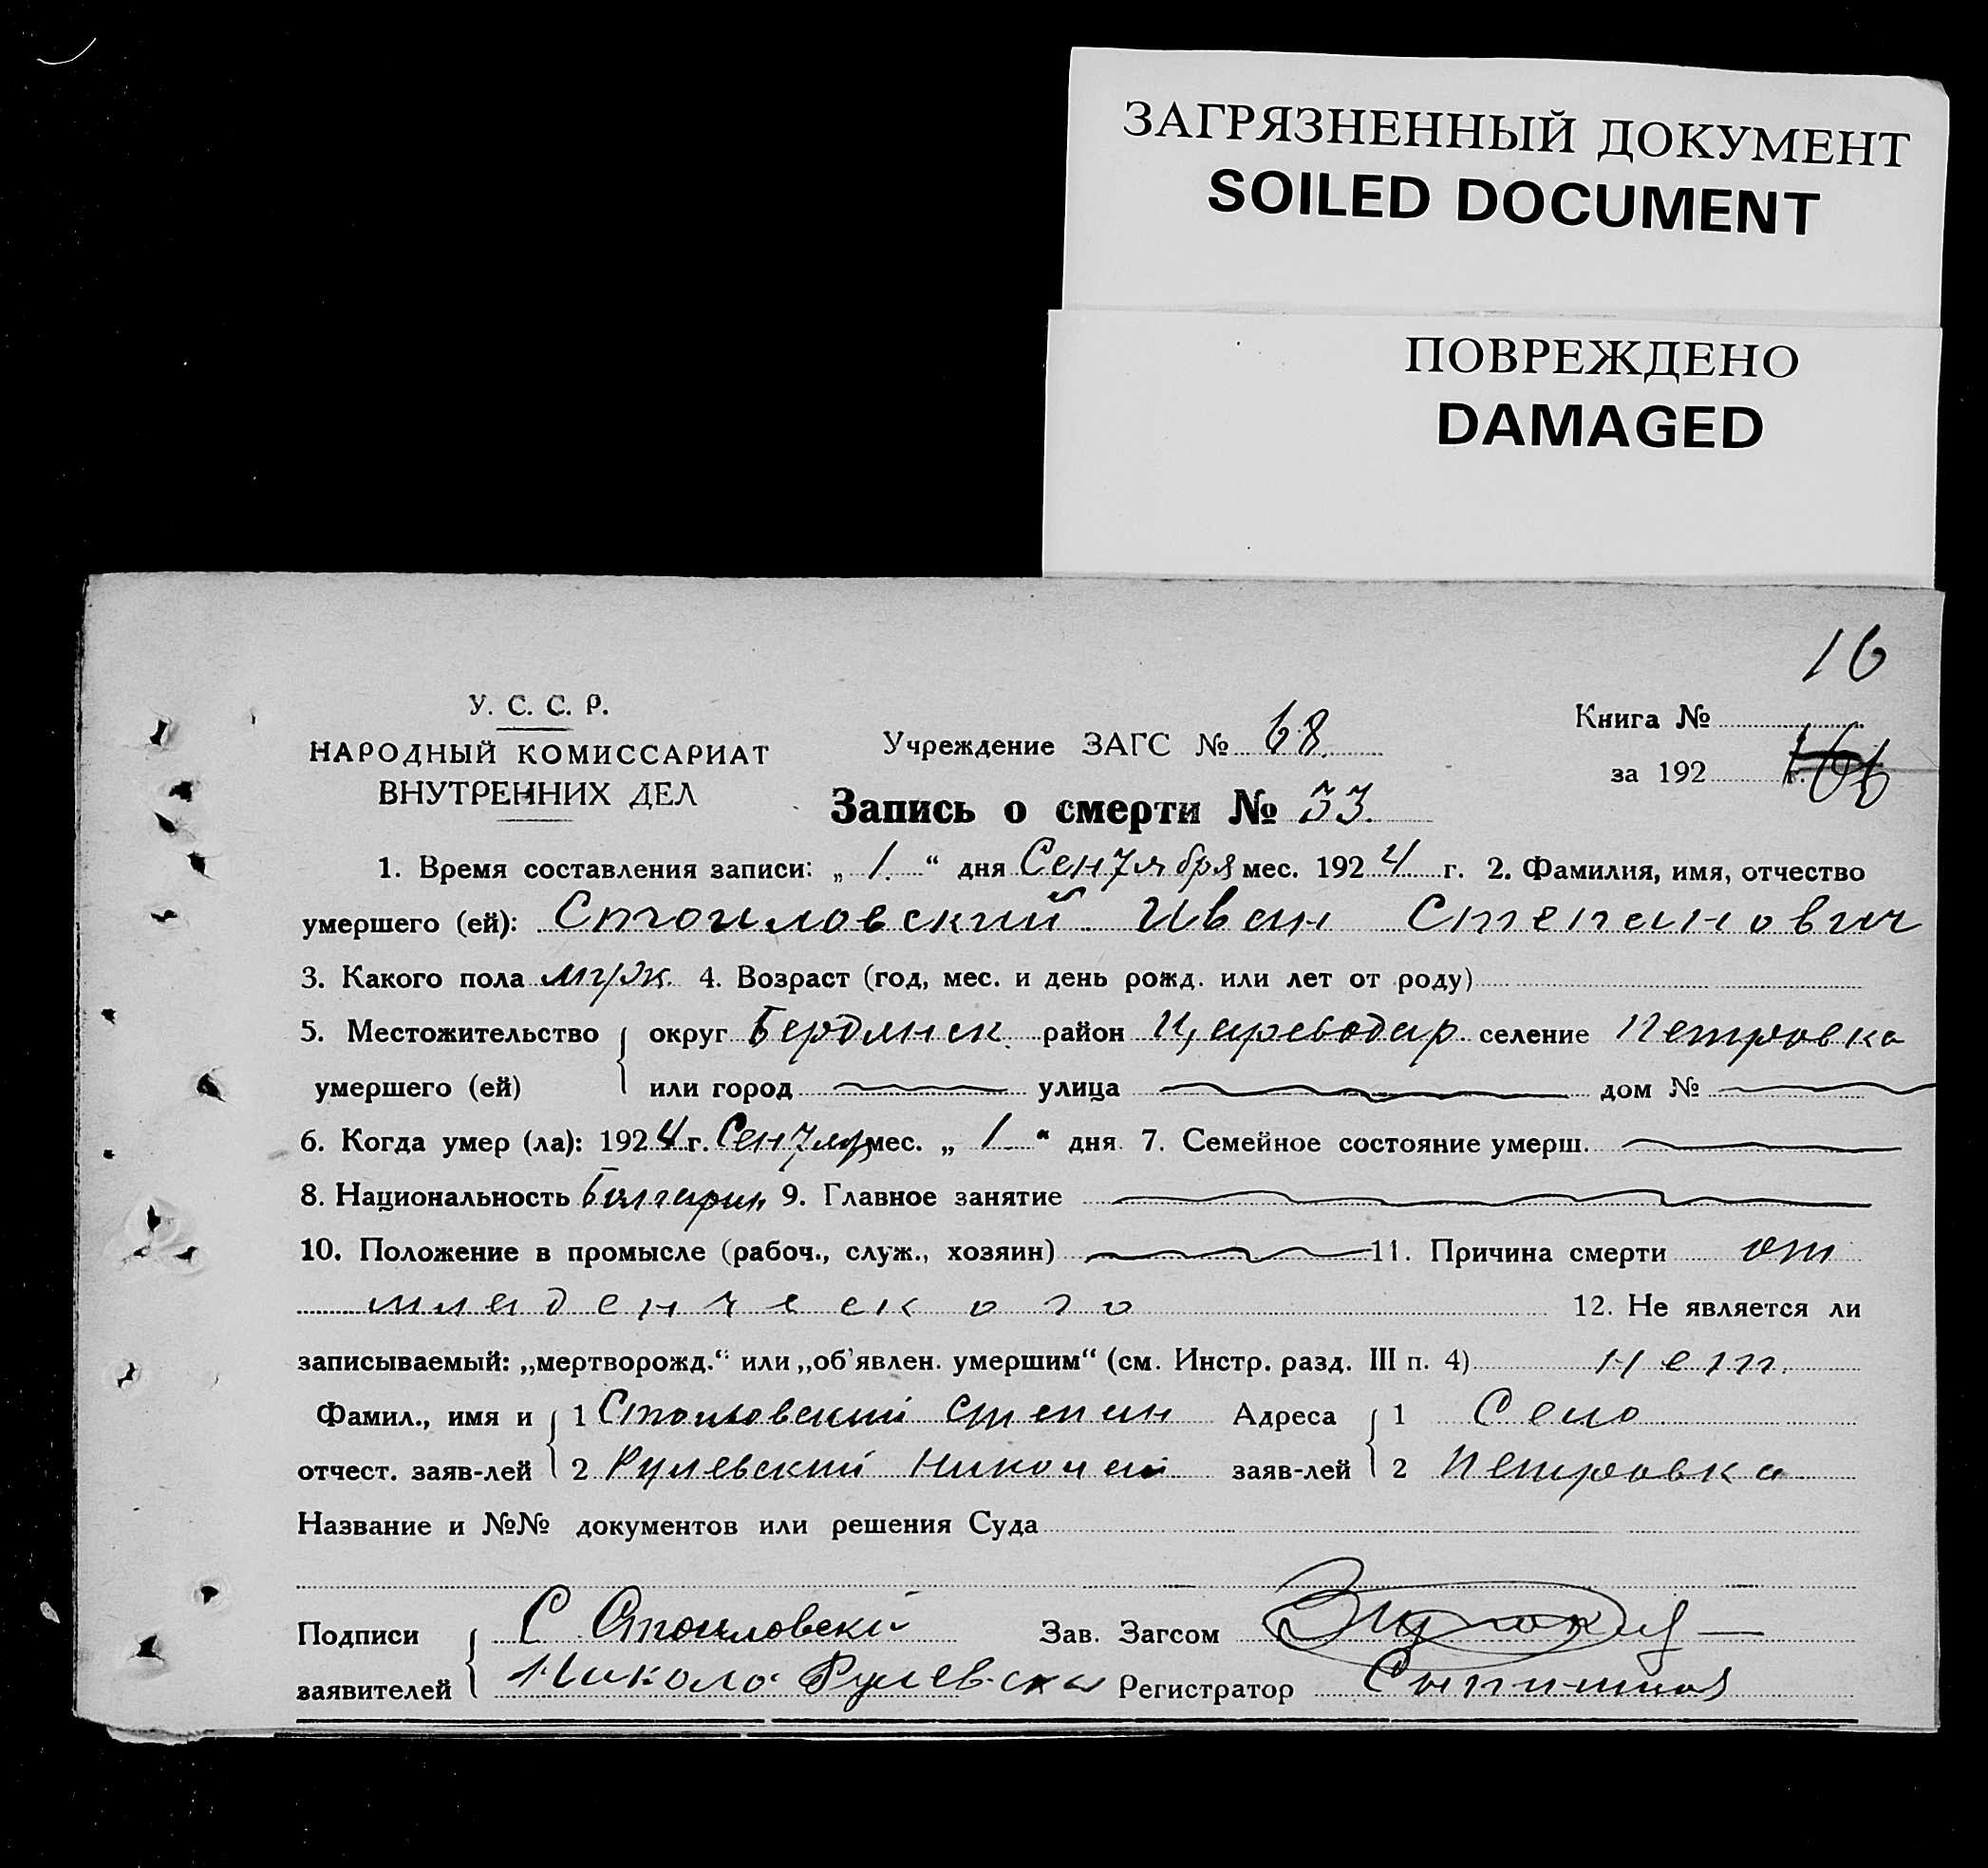 ЗАГРЯЗНЕННЫЙ ДОКУМЕНТ
SOILED DOCUMENT
ПОВРЕЖДЕНО
DAMAGED
16
У. С. С. Р.
НАРОДНЫЙ КОМИССАРИАТ
ВНУТРЕННИХ ДЕЛ
Учреждение ЗАГС № 68.
Книга №
за 192 г.
Запись о смерти № 33.
1. Время составления записи: „ 1. “ дня Сентября мес. 1924 г. 2. Фамилия, имя, отчество
умершего (ей): Стоиловский Иван Степанович
3. Какого пола муж. 4. Возраст (год, мес. и день рожд. или лет от роду)
5. Местожительство округ Бердянск. район Цареводар. селение Петровка
умершего (ей) или город улица дом №
6. Когда умер (ла): 1924 г. Сентябр мес. „ 1 “ дня 7. Семейное состояние умерш.
8. Национальность Болгарин 9. Главное занятие
10. Положение в промысле (рабоч., служ., хозяин) 11. Причина смерти от
младенческого 12. Не является ли
записываемый: „мертворожд.“ или „об'явлен. умершим“ (см. Инстр. разд. III п. 4) нет.
Фамил., имя и 1 Стоиловский Степан Адреса 1 Село
отчест. заяв-лей 2 Рулевский Николай заяв-лей 2 Петровка
Название и №№ документов или решения Суда
Подписи С Стоиловскі Зав. Загсом
заявителей Никола Рулевски Регистратор